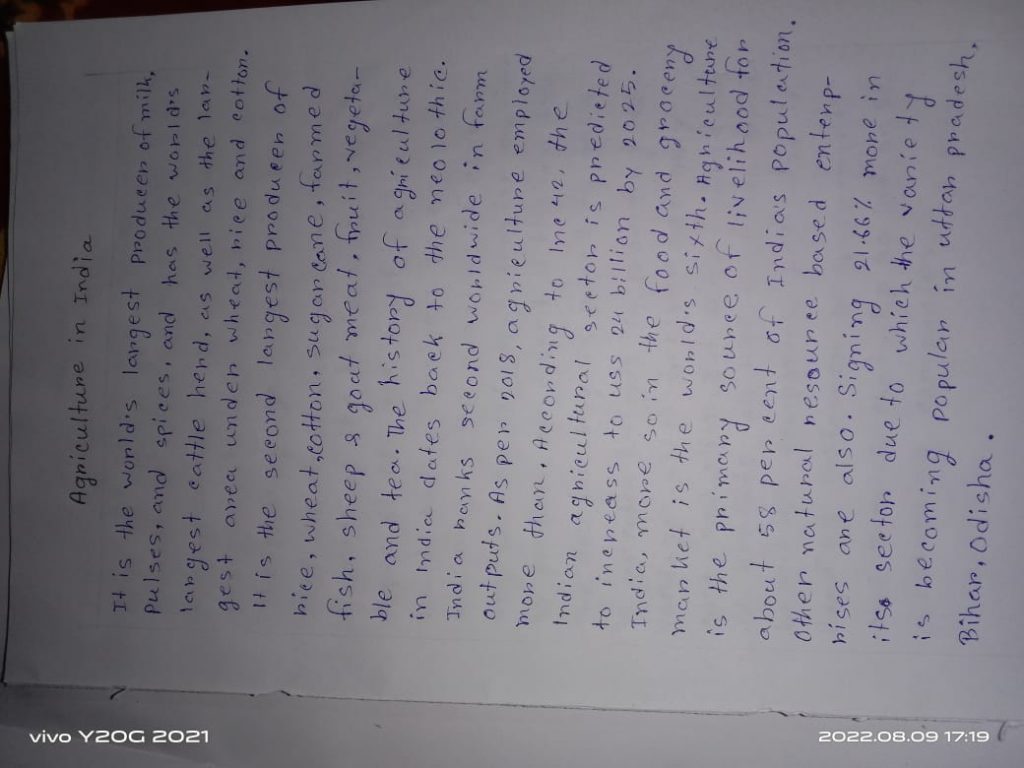 Agriculture in India
It is the world's largest producer of milk,
pulses, and spices, and has the world's
largest cattle herd, as well as the lar-
gest area under wheat, rice and cotton.
It is the second largest producer of
rice, wheat, cotton, sugarcane, farmed
fish, sheep & goat meat, fruit, vegeta-
ble and tea. The history of agriculture
in India dates back to the neolothic.
India ranks second worldwide in farm
outputs. As per 2018, agriculture employed
more than. According to Inc 42, the
Indian agricultural sector is predicted
to increass to uss 24 billion by 2025.
India, more so in the food and grocery
market is the world's sixth. Agriculture
is the primary source of livelihood for
about 58 per cent of Indias population.
Other natural resource based enterp-
rises are also. Signing 21.66% more in
its sector due to which the variety
is becoming popular in uttar pradesh,
Bihar, Odisha.
vivo Y20G 2021
2022.08.09 17:19